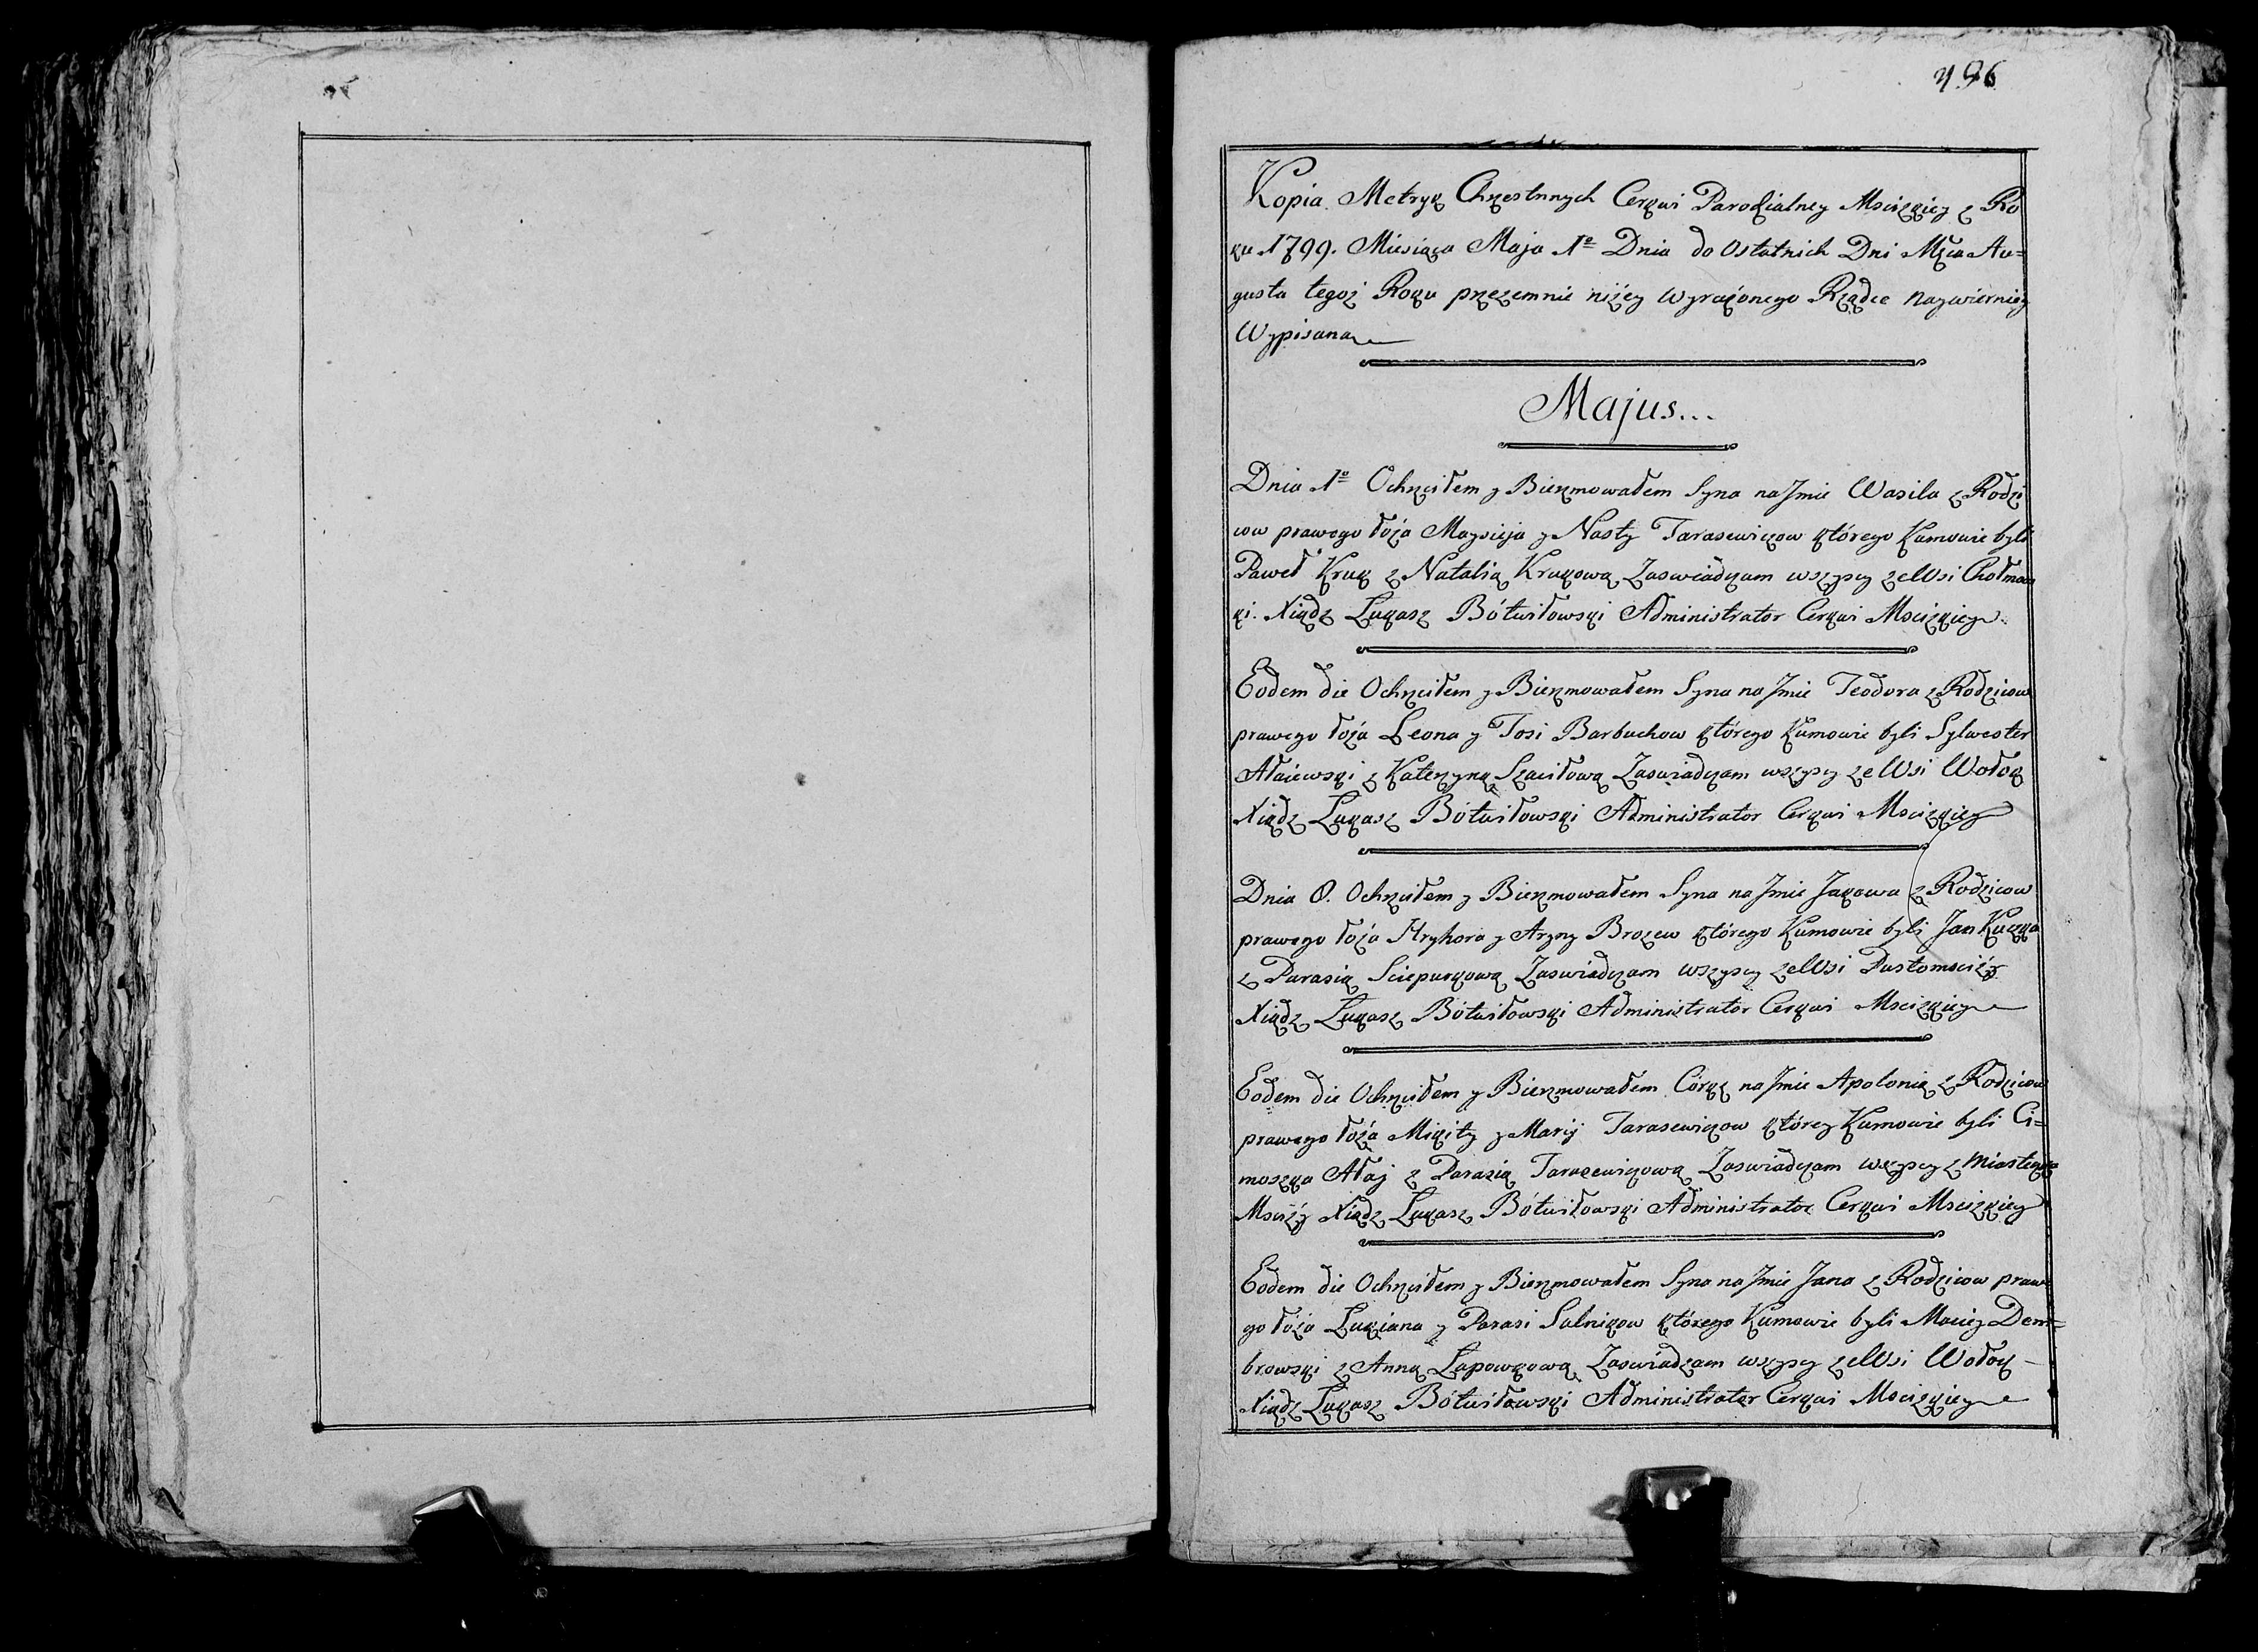 496
Kopia Metryk Chrzestnnych Cerkwi Parochialney Mscizkiey z Ro
ku 1799. Miesiąca Maja 1º Dnia do ostatnich Dni Mca Au=
gusta tegoż Roku przezemnie niżey wyrażonego Rządce naywierniey
Wypisana
Majus...
Dnia 1º Ochrzciłem y Bierzmowałem Syna na Jmie Wasila z Rodzi
cow prawego łoża Maysieja y Nasty Tarasewiczow którego Kumowie byli
Paweł Kruk z Natalią Krukową Zaswiadczam wszyscy ze Wsi Chołmow
ki. Xiądz Łukasz Bótwiłowski Administrator Cerkwi Mscizkiey
Eodem die Ochrzciłem y Bierzmowałem Syna na Jmie Teodora z Rodzicow
prawego łoża Leona y Tosi Barbuchow którego Kumowie byli Sylwester
Ałaiewski z Katerzyną Szaciłową Zaswiadczam wszyscy ze Wsi Wołok
Xiądz Łukasz Bótwiłowski Administrator Cerkwi Mscizkiey
Dnia 8. Ochrzciłem y Bierzmowałem Syna na Jmie Jakowa z Rodzicow
prawego łoża Hryhora y Aryny Brozew którego Kumowie byli Jan Kuczka
z Parasią Sciepurkową Zaswiadczam wszyscy ze Wsi Pustomsciży
Xiądz Łukasz Bótwiłowski Administrator Cerkwi Mscizkiey
Eodem die Ochrzciłem y Bierzmowałem Córkę na Jmie Apolonią z Rodzicow
prawego łoża Mikity y Marij Tarasewiczow którey Kumowie byli Ci=
moszka Ałaj z Parasią Tarasewiczową Zaswiadczam wszyscy z Miasteczka
Msciży Xiądz Łukasz Bótwiłowski Administrator Cerkwi Mscizkiey
Eodem die Ochrzciłem y Bierzmowałem Syna na Jmie Jana z Rodzicow prawe
go łoża Łukiana y Parasi Salnikow którego Kumowie byli Maciey Dem=
browski z Anną Łapowkową Zaswiadzam wszyscy ze Wsi Wołok
Xiądz Łukasz Bótwiłowski Administrator Cerkwi Mscizkiey